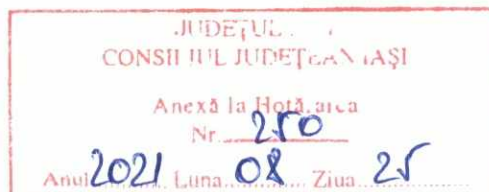 JUDEŢUL
CONSILIUL JUDEŢEAN IAŞI
Anexă la Hotărârea
Nr. 250
Anul 2021 Luna 08 Ziua 25